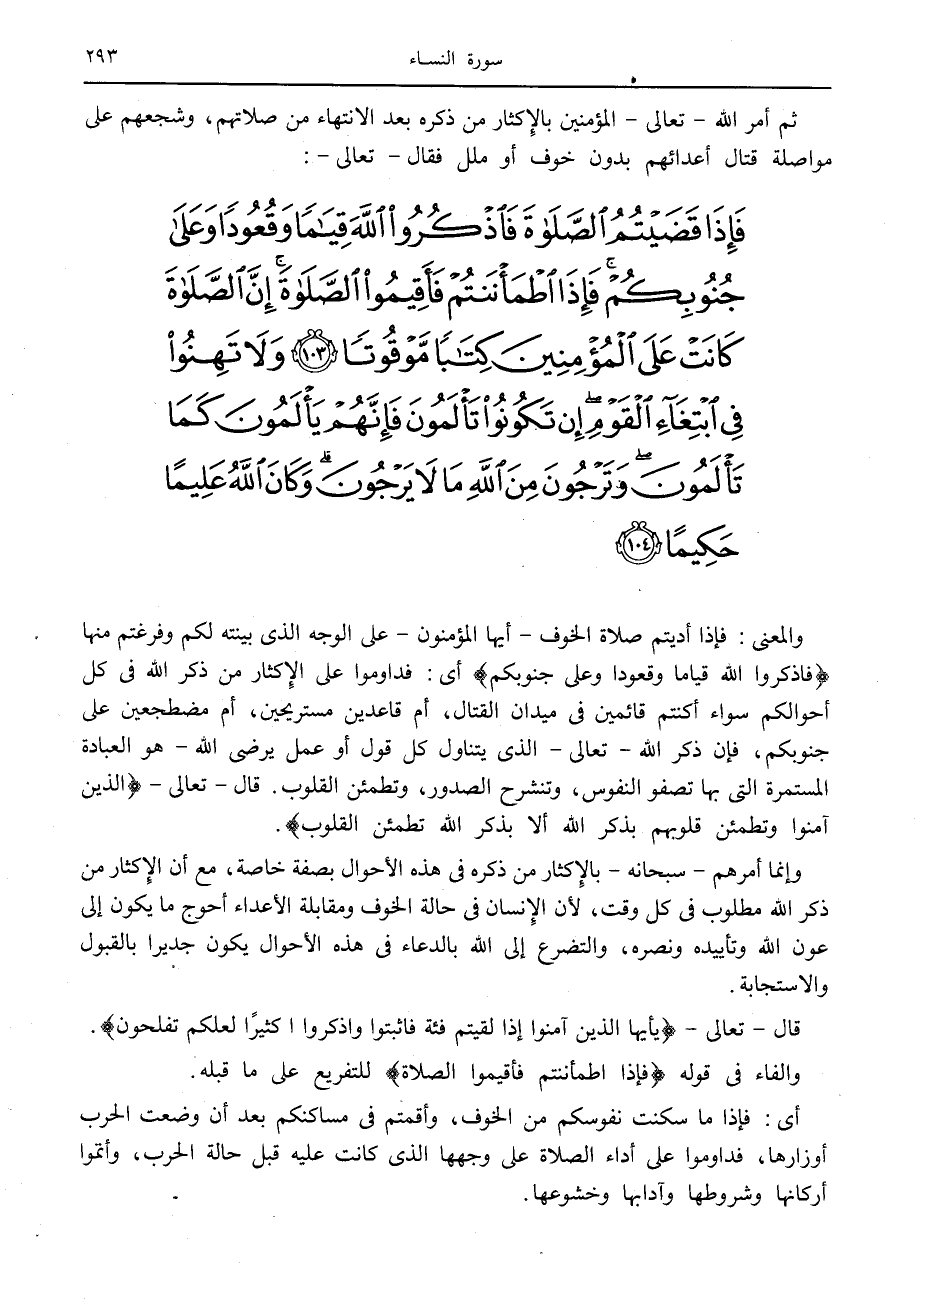 سورة النساء
٢٩٣
ثم أمر الله - تعالى - المؤمنين بالإكثار من ذكره بعد الانتهاء من صلاتهم، وشجعهم على
مواصلة قتال أعدائهم بدون خوف أو ملل فقال - تعالى - :
فَإِذَا قَضَيْتُمُ ٱلصَّلَوٰةَ فَٱذْكُرُوا۟ ٱللَّهَ قِيَـٰمًا وَقُعُودًا وَعَلَىٰ
جُنُوبِكُمْ ۚ فَإِذَا ٱطْمَأْنَنتُمْ فَأَقِيمُوا۟ ٱلصَّلَوٰةَ ۚ إِنَّ ٱلصَّلَوٰةَ
كَانَتْ عَلَى ٱلْمُؤْمِنِينَ كِتَـٰبًا مَّوْقُوتًا ﴿١٠٣﴾ وَلَا تَهِنُوا۟
فِى ٱبْتِغَآءِ ٱلْقَوْمِ ۖ إِن تَكُونُوا۟ تَأْلَمُونَ فَإِنَّهُمْ يَأْلَمُونَ كَمَا
تَأْلَمُونَ ۖ وَتَرْجُونَ مِنَ ٱللَّهِ مَا لَا يَرْجُونَ ۗ وَكَانَ ٱللَّهُ عَلِيمًا
حَكِيمًا ﴿١٠٤﴾
والمعنى : فإذا أديتم صلاة الخوف - أيها المؤمنون - على الوجه الذى بينته لكم وفرغتم منها
﴿فاذكروا الله قياما وقعودا وعلى جنوبكم﴾ أى : فداوموا على الإكثار من ذكر الله فى كل
أحوالكم سواء أكنتم قائمين فى ميدان القتال، أم قاعدين مستريحين، أم مضطجعين على
جنوبكم، فإن ذكر الله - تعالى - الذى يتناول كل قول أو عمل يرضى الله - هو العبادة
المستمرة التى بها تصفو النفوس، وتنشرح الصدور، وتطمئن القلوب. قال - تعالى - ﴿الذين
آمنوا وتطمئن قلوبهم بذكر الله ألا بذكر الله تطمئن القلوب﴾.
وإنما أمرهم - سبحانه - بالإكثار من ذكره فى هذه الأحوال بصفة خاصة، مع أن الإكثار من
ذكر الله مطلوب فى كل وقت، لأن الإنسان فى حالة الخوف ومقابلة الأعداء أحوج ما يكون إلى
عون الله وتأييده ونصره، والتضرع إلى الله بالدعاء فى هذه الأحوال يكون جديرا بالقبول
والاستجابة.
قال - تعالى - ﴿يأيها الذين آمنوا إذا لقيتم فئة فاثبتوا واذكروا ا كثيرًا لعلكم تفلحون﴾.
والفاء فى قوله ﴿فإذا اطمأننتم فأقيموا الصلاة﴾ للتفريع على ما قبله.
أى : فإذا ما سكنت نفوسكم من الخوف، وأقمتم فى مساكنكم بعد أن وضعت الحرب
أوزارها، فداوموا على أداء الصلاة على وجهها الذى كانت عليه قبل حالة الحرب، وأتموا
أركانها وشروطها وآدابها وخشوعها.